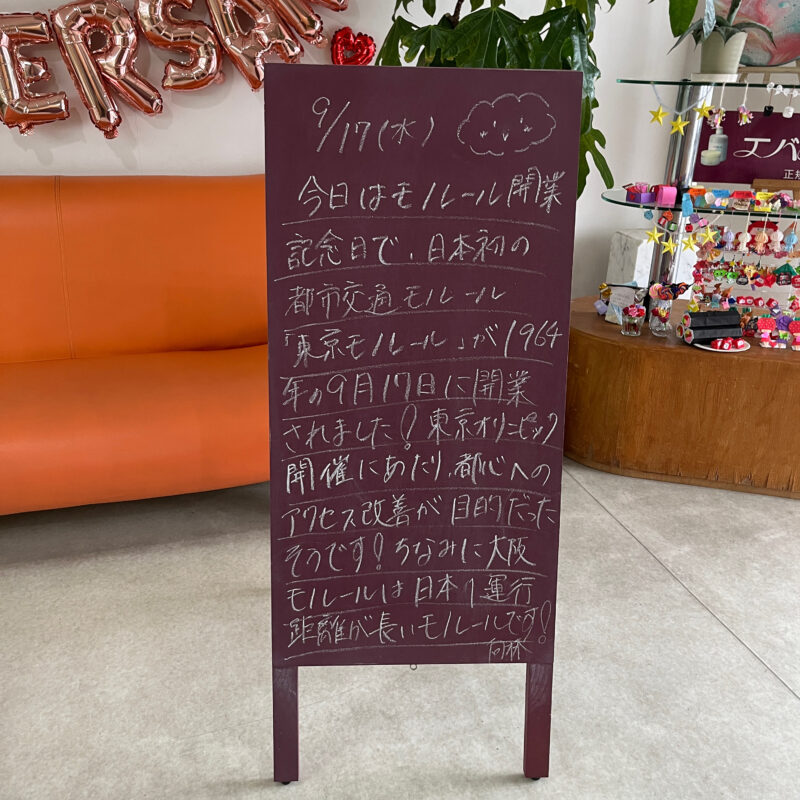 ERSA
9/17(水)
今日はモノレール開業
記念日で、日本初の
都市交通モノレール
「東京モノレール」が1964
年の9月17日に開業
されました!東京オリンピック
開催にあたり、都心への
アクセス改善が目的だった
そうです!ちなみに大阪
モノレールは日本1運行
距離が長いモノレールです!
向林
エバ
正規